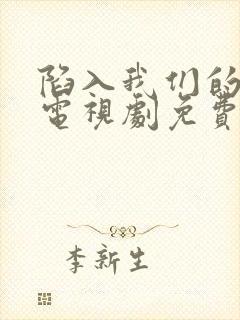 陷入我们的
電視劇免費
李新生